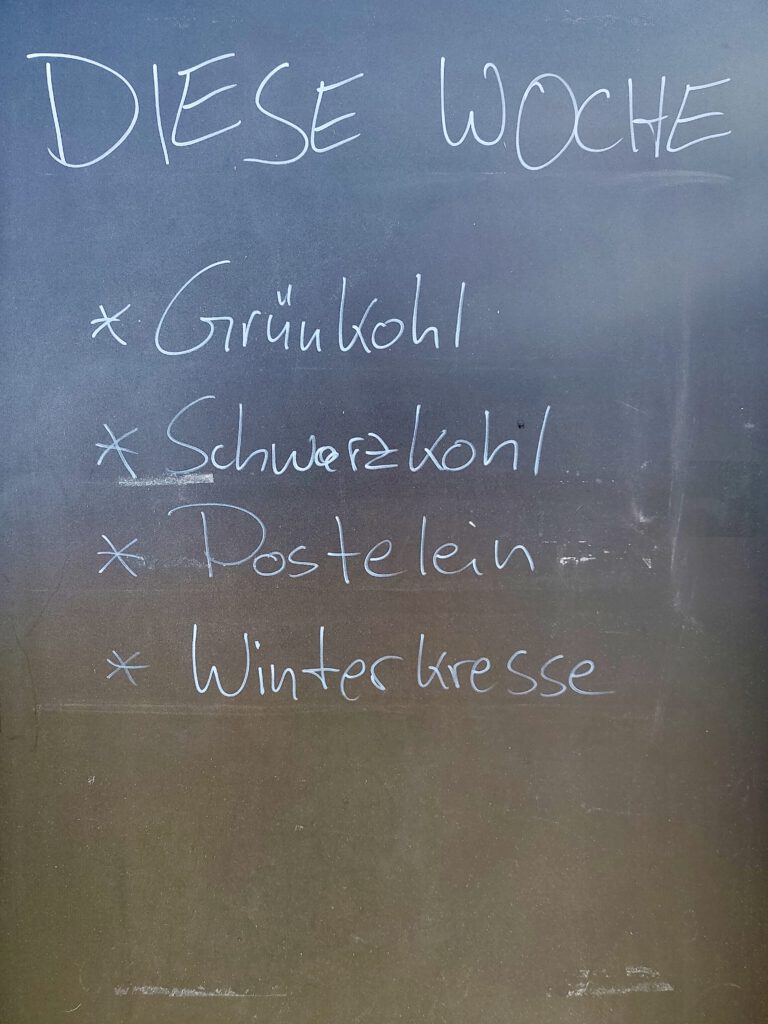 DIESE WOCHE
* Grünkohl
* Schwarzkohl
* Postelein
* Winterkresse